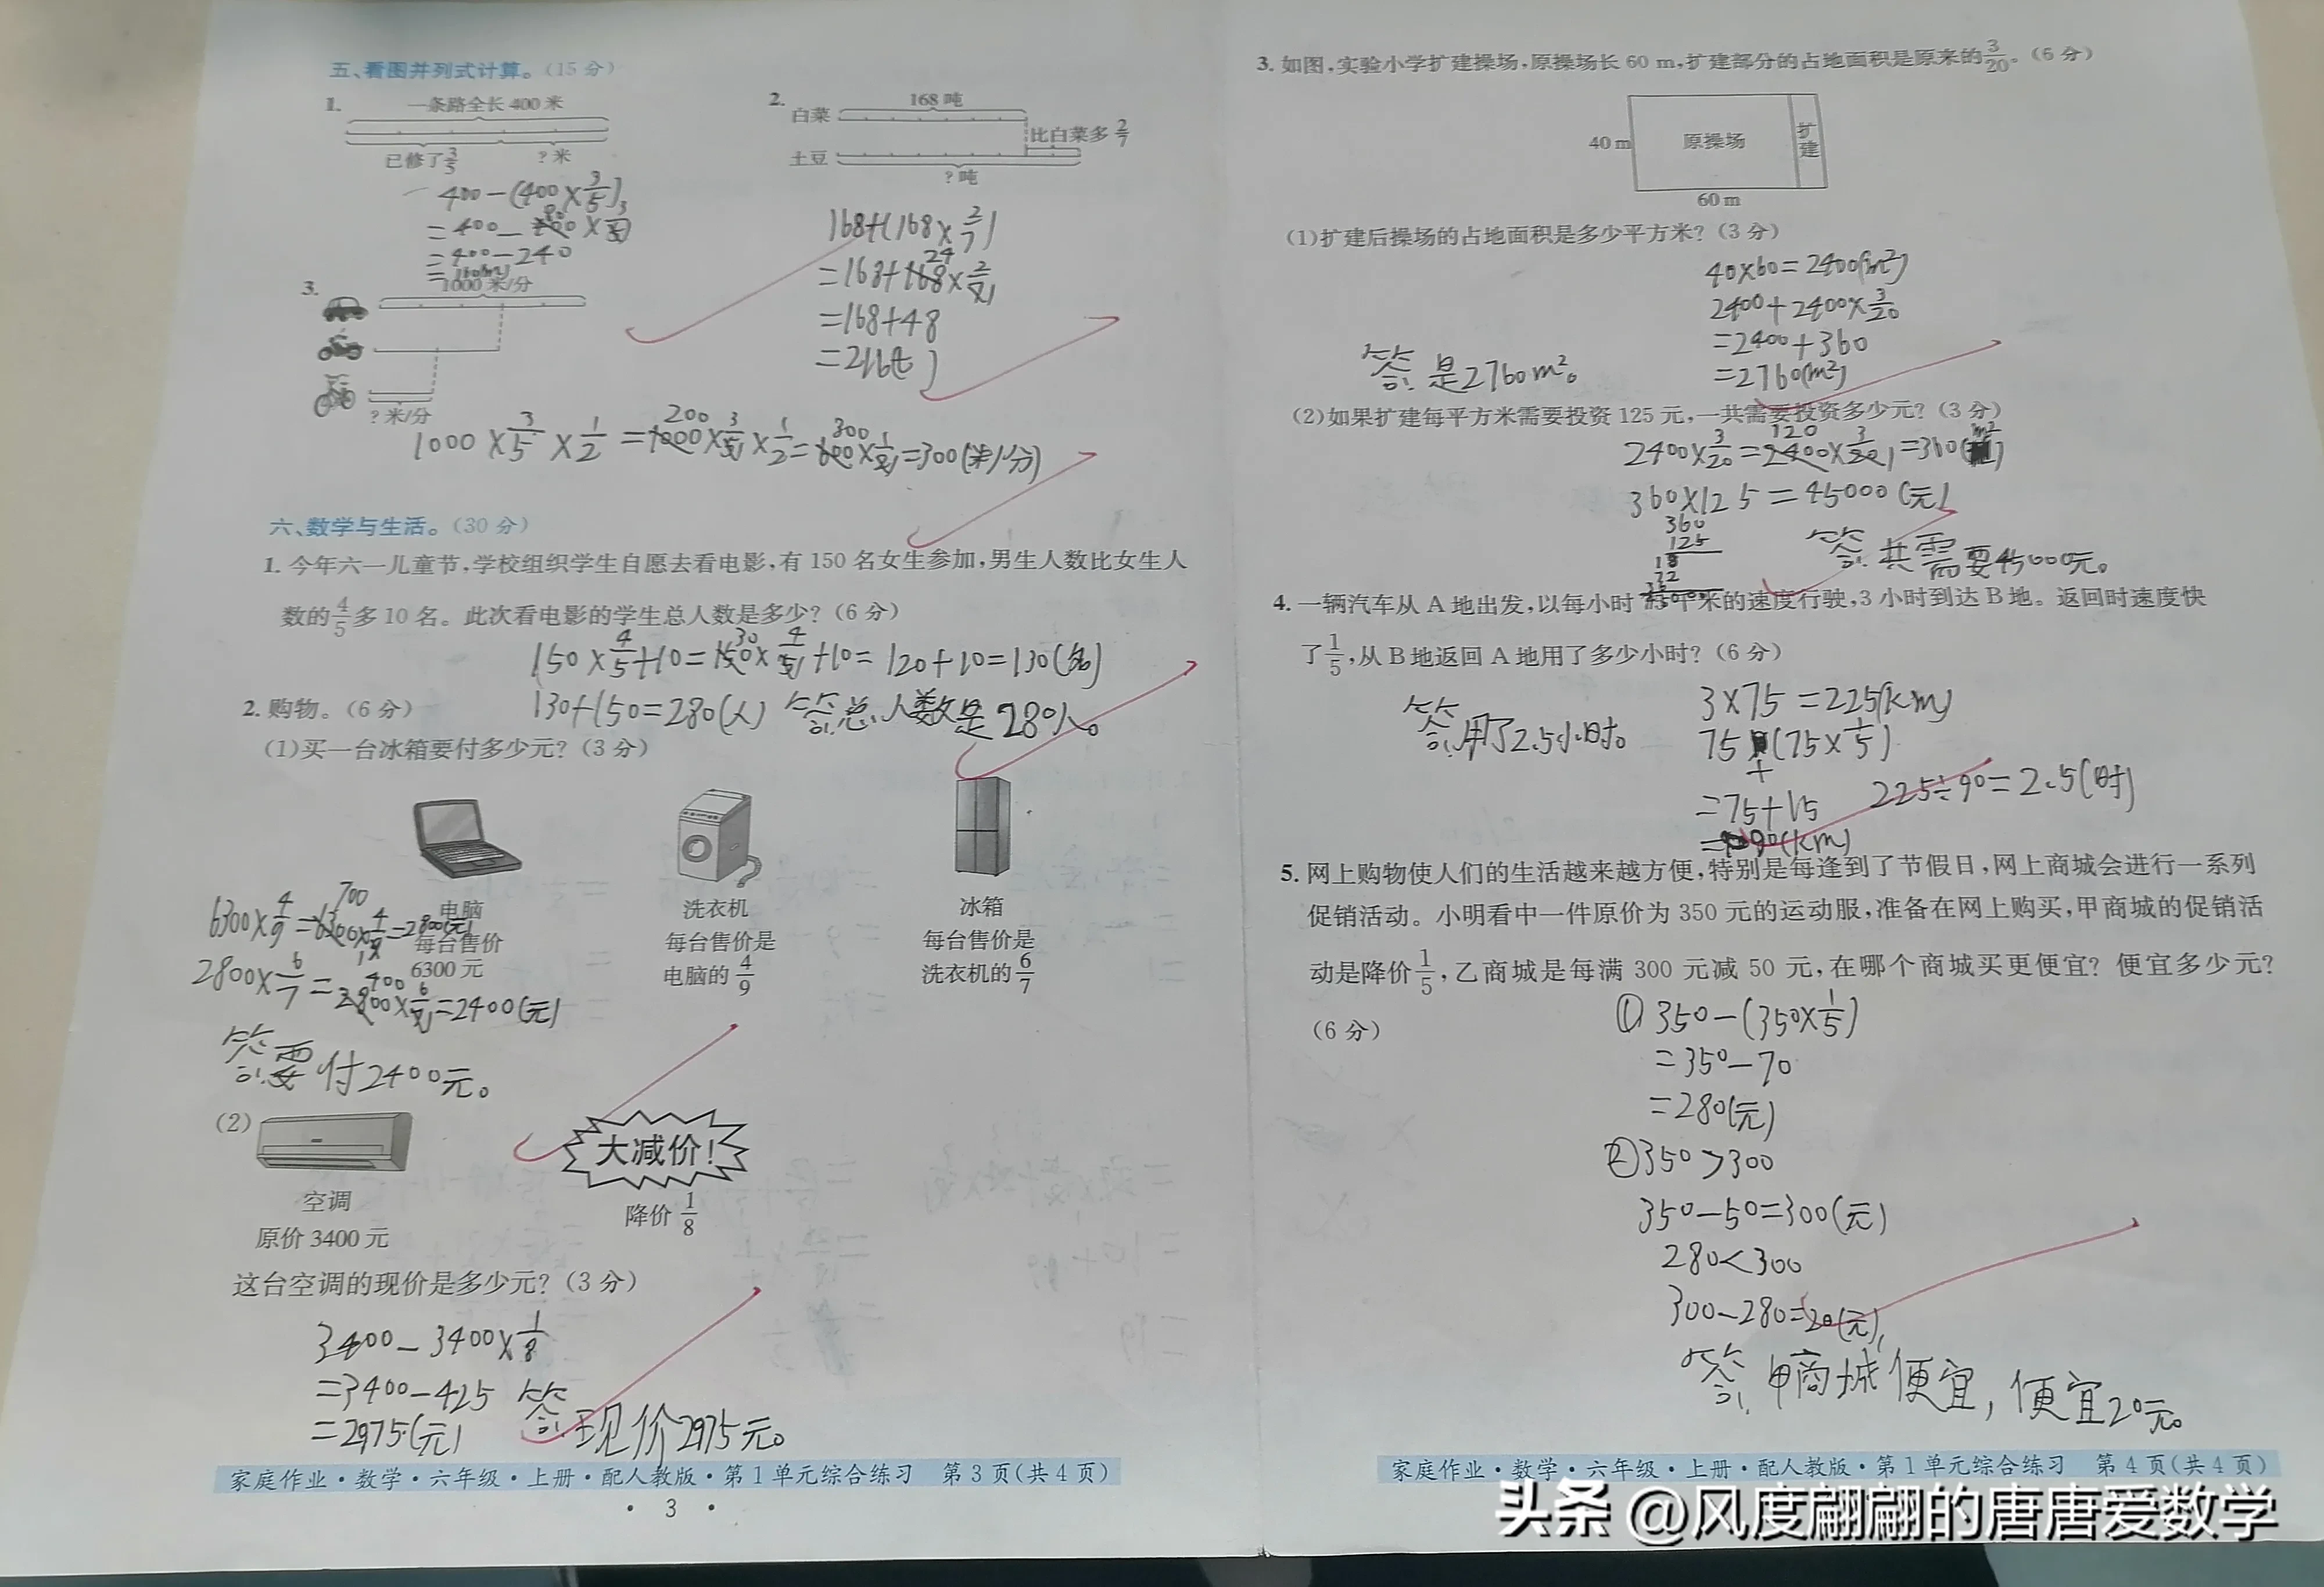 五、看图并列式计算。(15 分)
1. 一条路全长 400 米
已修了3/5 ?米
400-(400×3/5)
=400-400×3/5
=400-240
=160(m)
2. 168 吨
白菜
比白菜多 2/7
土豆
?吨
168+(168×2/7)
=168+168×2/7
=168+48
=216(t)
3. 1000 米/分
?米/分
1000×3/5×1/2=1000×3/5×1/2=600×1/2=300(米/分)
六、数学与生活。(30 分)
1. 今年六一儿童节,学校组织学生自愿去看电影,有 150 名女生参加,男生人数比女生人
数的4/5多 10 名。此次看电影的学生总人数是多少?(6 分)
150×4/5+10=150×4/5+10=120+10=130(名)
130+150=280(人) 答:总人数是280人。
2. 购物。(6 分)
(1)买一台冰箱要付多少元?(3 分)
电脑
每台售价
6300 元
洗衣机
每台售价是
电脑的 4/9
冰箱
每台售价是
洗衣机的 6/7
6300×4/9=6300×4/9=2800(元)
2800×6/7=2800×6/7=2400(元)
答:要付2400元。
(2)
大减价!
空调
降价 1/8
原价 3400 元
这台空调的现价是多少元?(3 分)
3400-3400×1/8
=3400-425
=2975(元)
答:现价2975元。
家庭作业·数学·六年级·上册·配人教版·第1单元综合练习 第3页(共4页)
· 3 ·
3. 如图,实验小学扩建操场,原操场长 60 m,扩建部分的占地面积是原来的3/20。(6 分)
40 m
原操场
扩建
60 m
(1)扩建后操场的占地面积是多少平方米?(3 分)
40×60=2400(m²)
2400+2400×3/20
=2400+360
=2760(m²)
答:是2760m²。
(2)如果扩建每平方米需要投资 125 元,一共需要投资多少元?(3 分)
2400×3/20=2400×3/20=360(m²)
360×125=45000(元)
360
125
18
72
答:共需要45000元。
4. 一辆汽车从 A 地出发,以每小时 千米的速度行驶,3 小时到达 B 地。返回时速度快
了1/5,从 B 地返回 A 地用了多少小时?(6 分)
3×75=225(km)
75+(75×1/5)
=75+15
=90(km)
225÷90=2.5(时)
答:用了2.5小时。
5. 网上购物使人们的生活越来越方便,特别是每逢到了节假日,网上商城会进行一系列
促销活动。小明看中一件原价为 350 元的运动服,准备在网上购买,甲商城的促销活
动是降价1/5,乙商城是每满 300 元减 50 元,在哪个商城买更便宜?便宜多少元?
(6 分)
①350-(350×1/5)
=350-70
=280(元)
②350>300
350-50=300(元)
280<300
300-280=20(元)
答:甲商城便宜,便宜20元。
家庭作业·数学·六年级·上册·配人教版·第1单元综合练习 第4页(共4页)
头条 @风度翩翩的唐唐爱数学